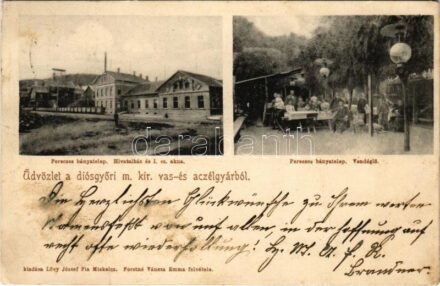 Perecses bányatelep. Hivatalház és I. sz. akna.
Perecses bányatelep. Vendéglő.
Üdvözlet a diósgyőri m. kir. vas-és aczélgyárból.
Die herzlichsten Glückwünsche zu Ihrem werten
Namensfeste von uns allen, in der Hoffnung auf
recht oftse wiederhollung! Hr. M. A. f. R.
Brandner.
kiadása Lövy József Fia Miskolcz. Forstné Váncsa Emma felvétele.